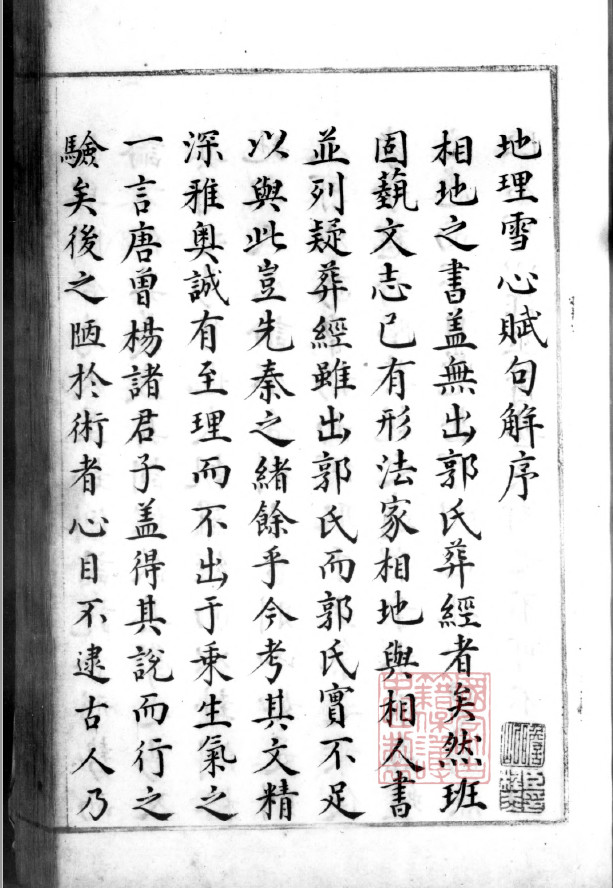 地理雪心賦句解序
相地之書盖無出郭氏葬經者矣然班
固藝文志已有形法家相地與相人書
並列疑葬經雖出郭氏而郭氏實不足
以與此豈先秦之緒餘乎今考其文精
深雅奧誠有至理而不出于乘生氣之
一言唐曾楊諸君子盖得其說而行之
驗矣後之陋於術者心目不逮古人乃